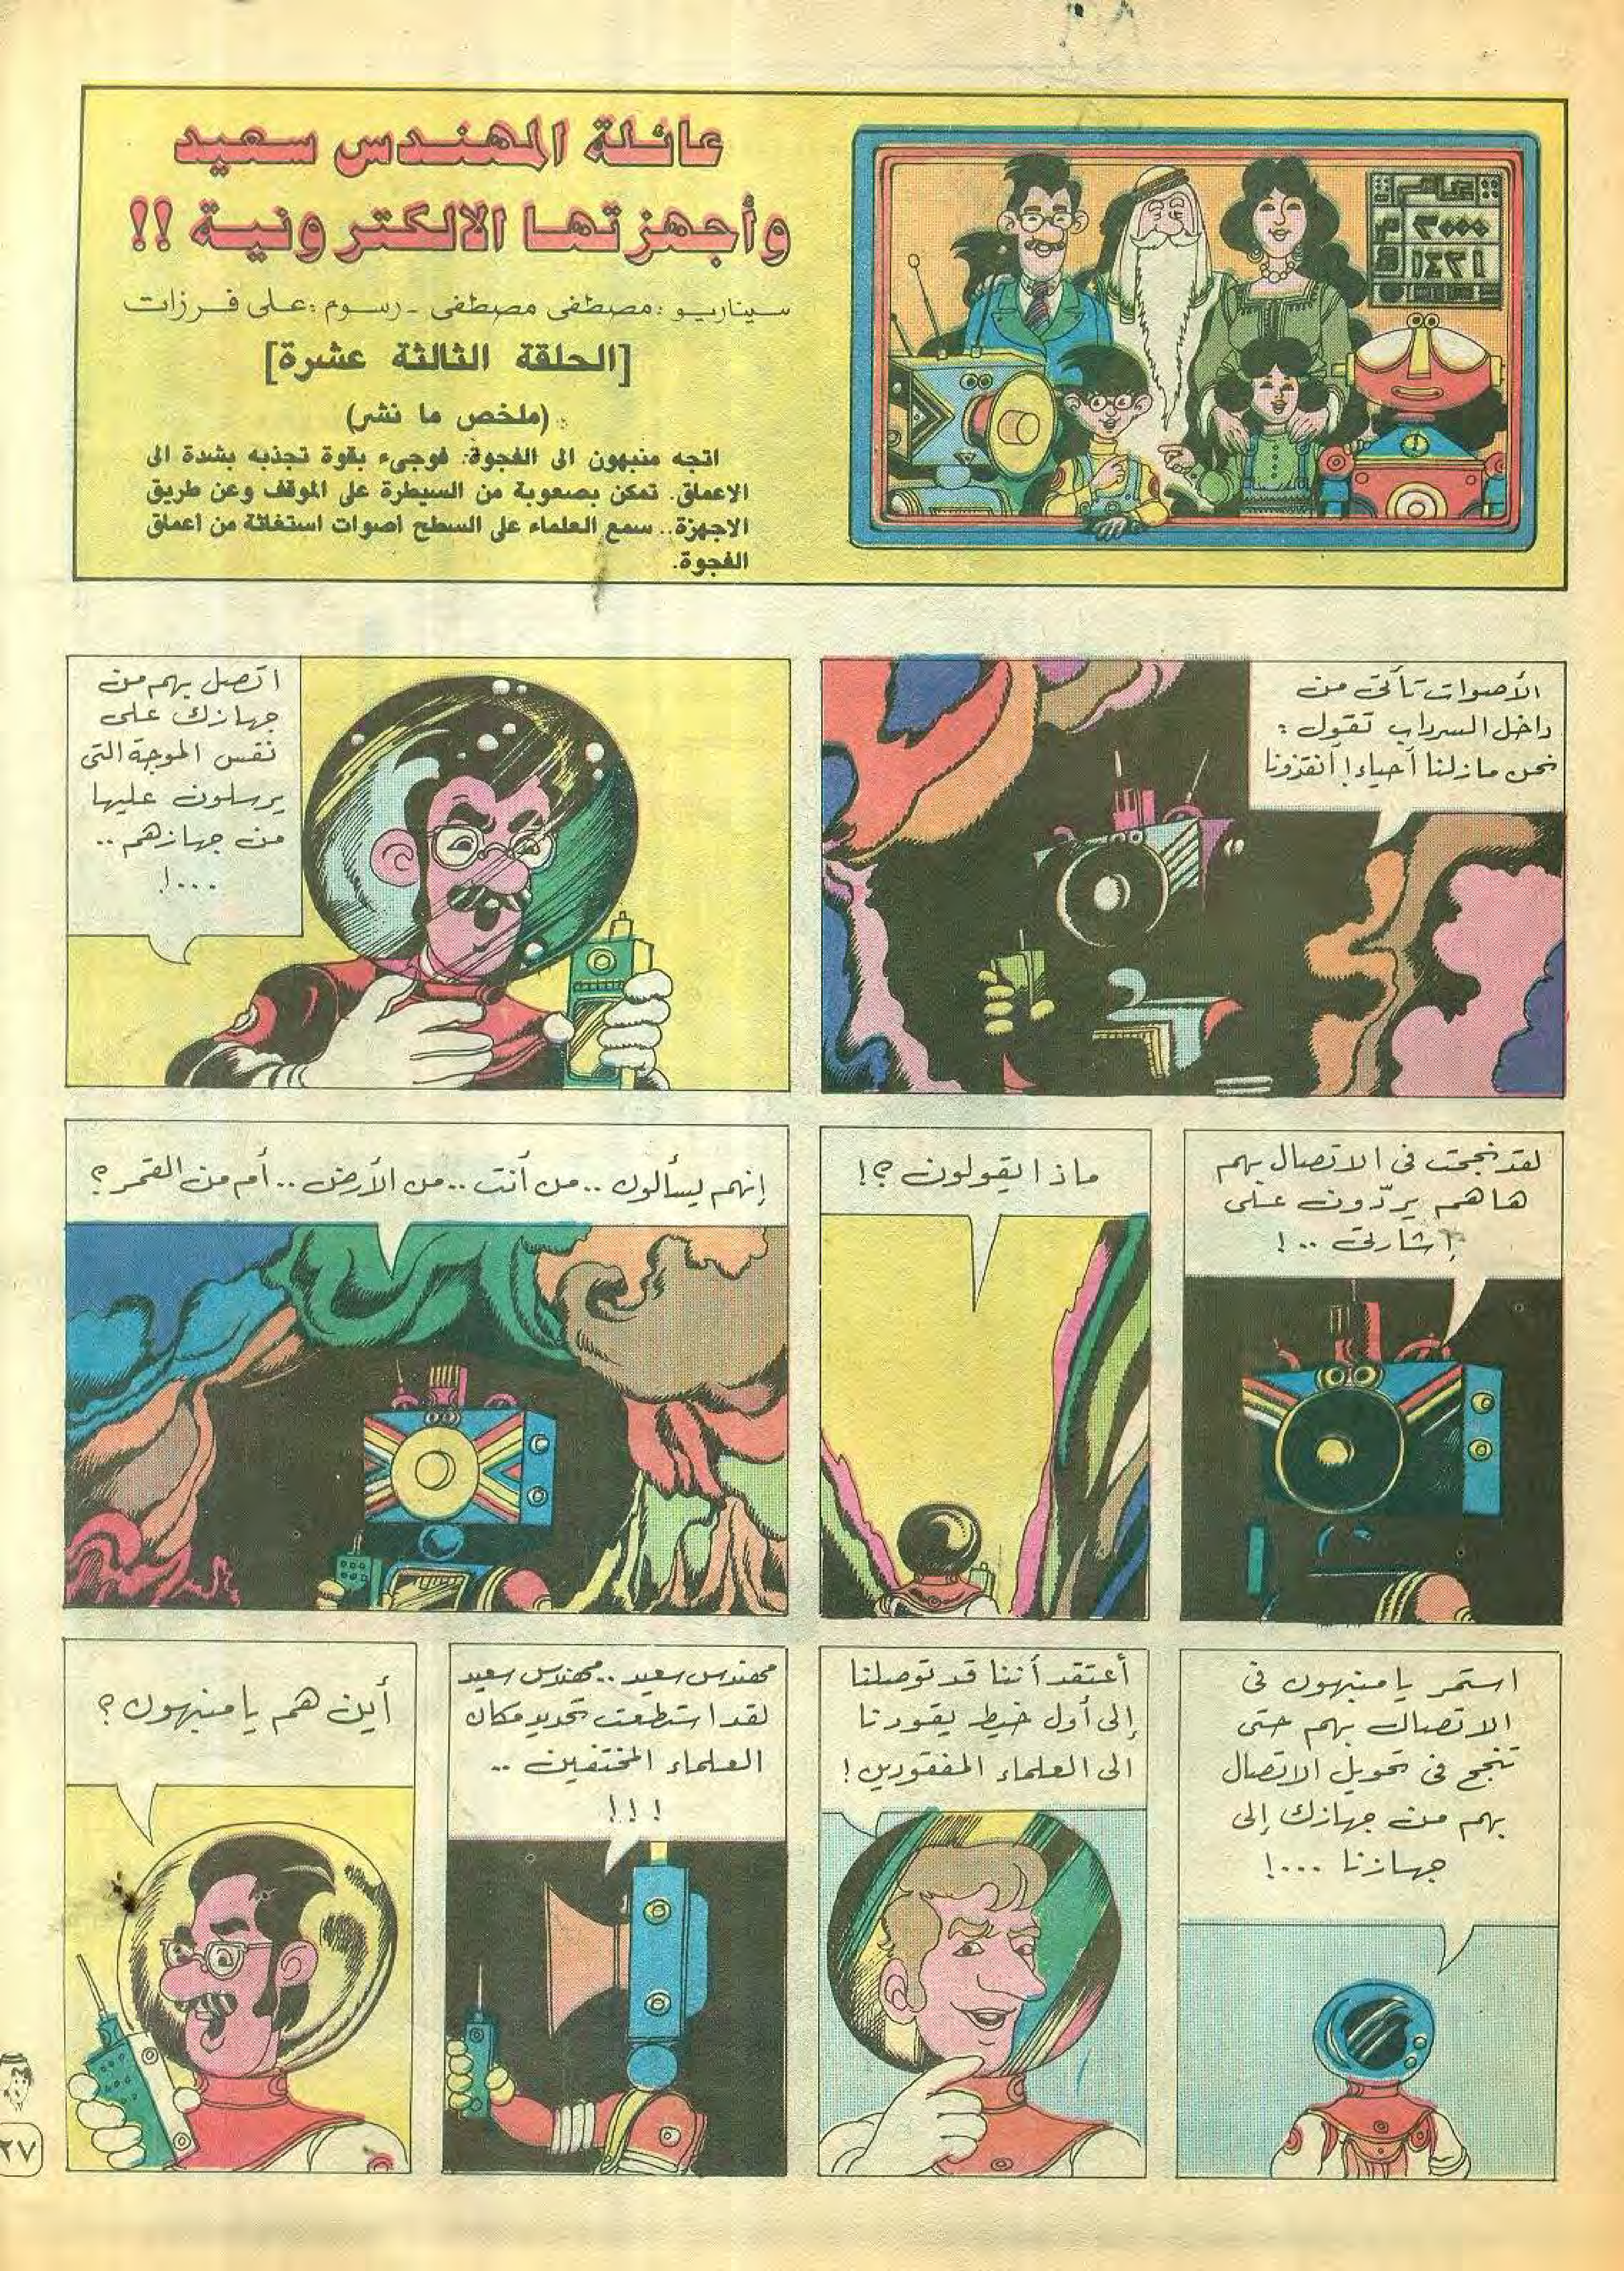 عائلة المهندس سعيد
وأجهزتها الالكترونية !!
سيناريو : مصطفى مصطفى - رسوم : على فرزات
[الحلقة الثالثة عشرة]
(ملخص ما نشر)
اتجه منبهون الى الفجوة. فوجىء بقوة تجذبه بشدة الى
الاعماق. تمكن بصعوبة من السيطرة على الموقف وعن طريق
الاجهزة.. سمع العلماء على السطح أصوات استغاثة من أعماق
الفجوة.
٢٠٠٠ م
١٤٢١ هـ
الأصوات تأتى من
داخل السرداب تقول :
نحن مازلنا أحياء! أنقذونا
اتصل بهم من
جهازك على
نفس الموجة التى
يرسلون عليها
من جهازهم ..
...!
لقد نجحت فى الاتصال بهم
هاهم يردّون على
إشارتى ..!
ماذا يقولون ؟!
إنهم يسألون .. من أنت .. من الأرض .. أم من القمر ؟
استمر يا منبهون فى
الاتصال بهم حتى
تنجح فى تحويل الاتصال
بهم من جهازك إلى
جهازنا ...!
أعتقد أننا قد توصلنا
إلى أول خيط يقودنا
الى العلماء المفقودين !
مهندس سعيد .. مهندس سعيد
لقد استطعت تحديد مكان
العلماء المختفين ..
!!!
أين هم يا منبهون ؟
٢٧